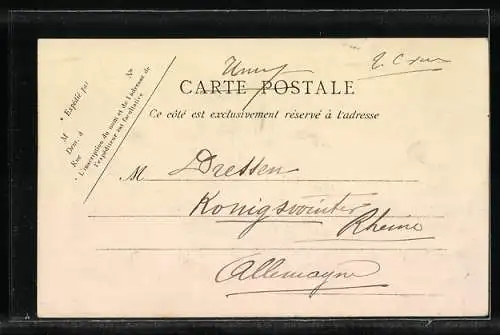 CARTE POSTALE
Ce côté est exclusivement réservé à l'adresse
Expédié par
M
Dem. à
Rue
No
L'inscription du nom et de l'adresse de
l'expéditeur est facultative
M. Dressen
Konigswinter
Rheine
Allemagne